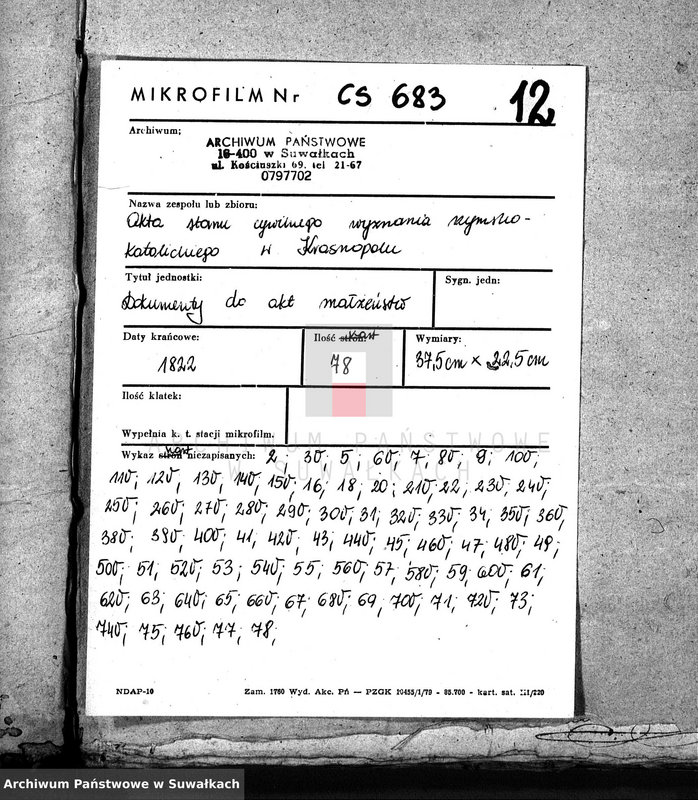 MIKROFILM Nr CS 683 12
Archiwum;
ARCHIWUM PAŃSTWOWE
16-400 w Suwałkach
ul. Kościuszki 69. tel 21-67
0797702
Nazwa zespołu lub zbioru:
Akta stanu cywilnego wyznania rzymsko-
katolickiego w Krasnopolu
Tytuł jednostki:
Sygn. jedn:
Dokumenty do akt małżeństw
Daty krańcowe:
1822
Ilość stron: kart
78
Wymiary:
37,5cm × 22,5cm
Ilość klatek:
Wypełnia k. t. stacji mikrofilm.
ARCHIWUM PAŃSTWOWE
W SUWAŁKACH
Wykaz stron kart niezapisanych: 2, 3v; 5; 6v; 7; 8v; 9; 10v;
11v; 12v; 13v; 14v; 15v; 16; 18; 20; 21v; 22; 23v; 24v;
25v; 26v; 27v; 28v; 29v; 30v; 31; 32v; 33v; 34; 35v; 36v;
38v; 39v; 40v; 41; 42v; 43; 44v; 45; 46v; 47; 48v; 49;
50v; 51; 52v; 53; 54v; 55; 56v; 57; 58v; 59; 60v; 61;
62v; 63; 64v; 65; 66v; 67; 68v; 69; 70v; 71; 72v; 73;
74v; 75; 76v; 77; 78;
NDAP-10 Zam. 1760 Wyd. Akc. Pń — PZGK 19455/1/79 - 85.700 - kart. sat. III/220
Archiwum Państwowe w Suwałkach